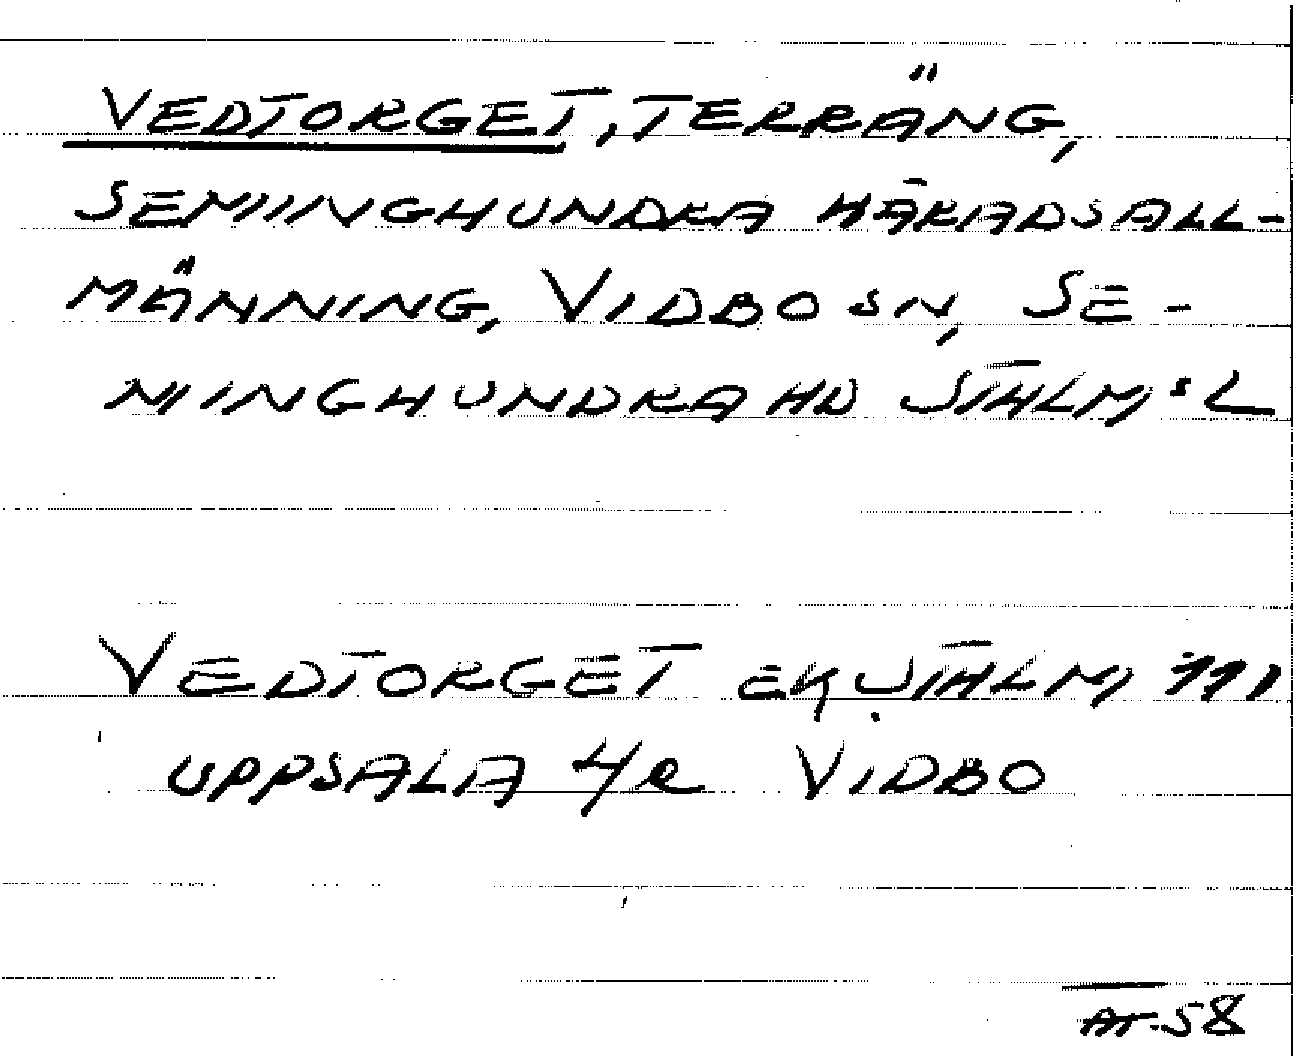 VEDTORGET, TERRÄNG,
SEMINGHUNDRA HÄRADSALL-
MÄNNING, VIDBO SN, SE-
MINGHUNDRA HD STHLM:S L
VEDTORGET EK STHLM 111
UPPSALA 4e VIDBO
AT-58